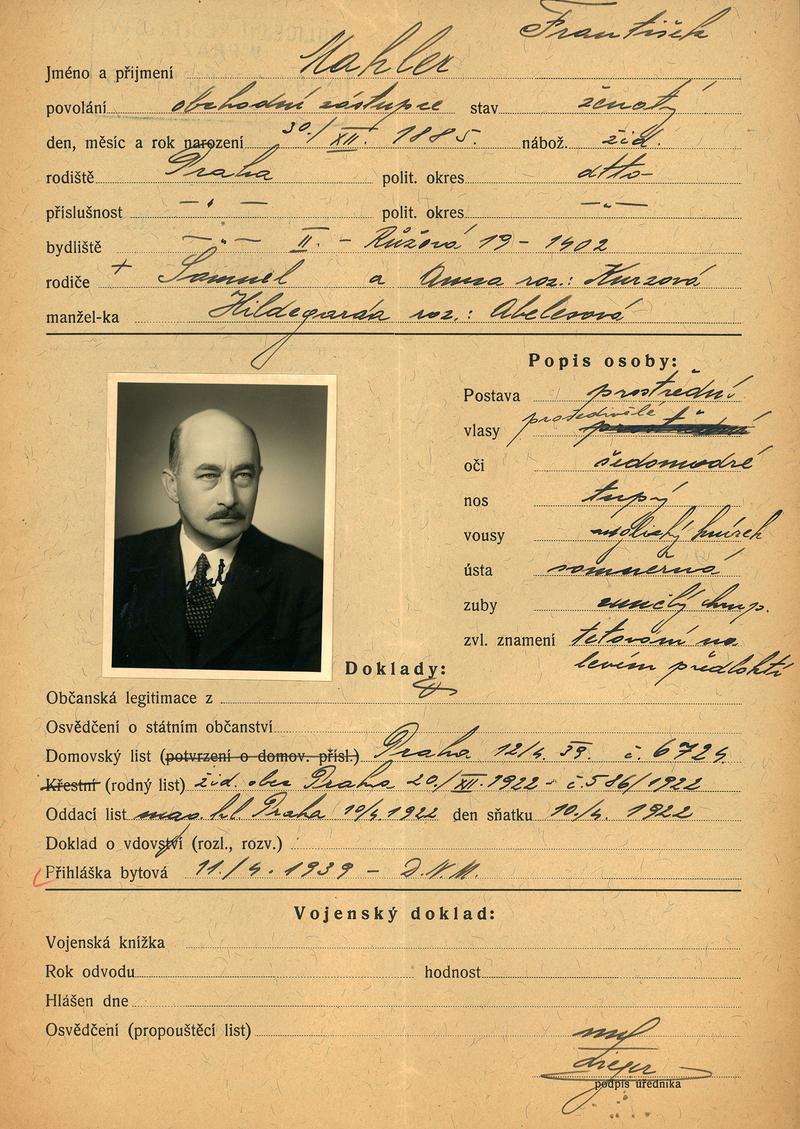 František
Jméno a přijmení Mahler
povolání obchodní zástupce stav ženatý
den, měsíc a rok narození 30./XII. 1885. nábož. žid.
rodiště Praha polit. okres dtto-
příslušnost -"- polit. okres -"-
bydliště -"- II. - Růžová 19 - 1402
rodiče + Samuel a Anna roz.: Kurzová
manžel-ka Hildegarda roz.: Abelesová
Popis osoby:
Postava prostřední
vlasy prošedivělé
oči šedomodré
nos tupý
vousy anglický knírek
ústa souměrná
zuby umělý chrup.
zvl. znamení tetování na
levém předloktí
Doklady:
Občanská legitimace z
Osvědčení o státním občanství
Domovský list (potvrzení o domov. přísl.) Praha 12/4. 39. č. 6724
Křestní (rodný list) žid. obec Praha 20./XII. 1922 - č. 586/1922
Oddací list mag. hl. Praha 10/4. 1922 den sňatku 10./4. 1922
Doklad o vdovství (rozl., rozv.)
Přihláška bytová 11./4. 1939 - D.N.M.
Vojenský doklad:
Vojenská knížka
Rok odvodu hodnost
Hlášen dne
Osvědčení (propouštěcí list)
podpis úředníka